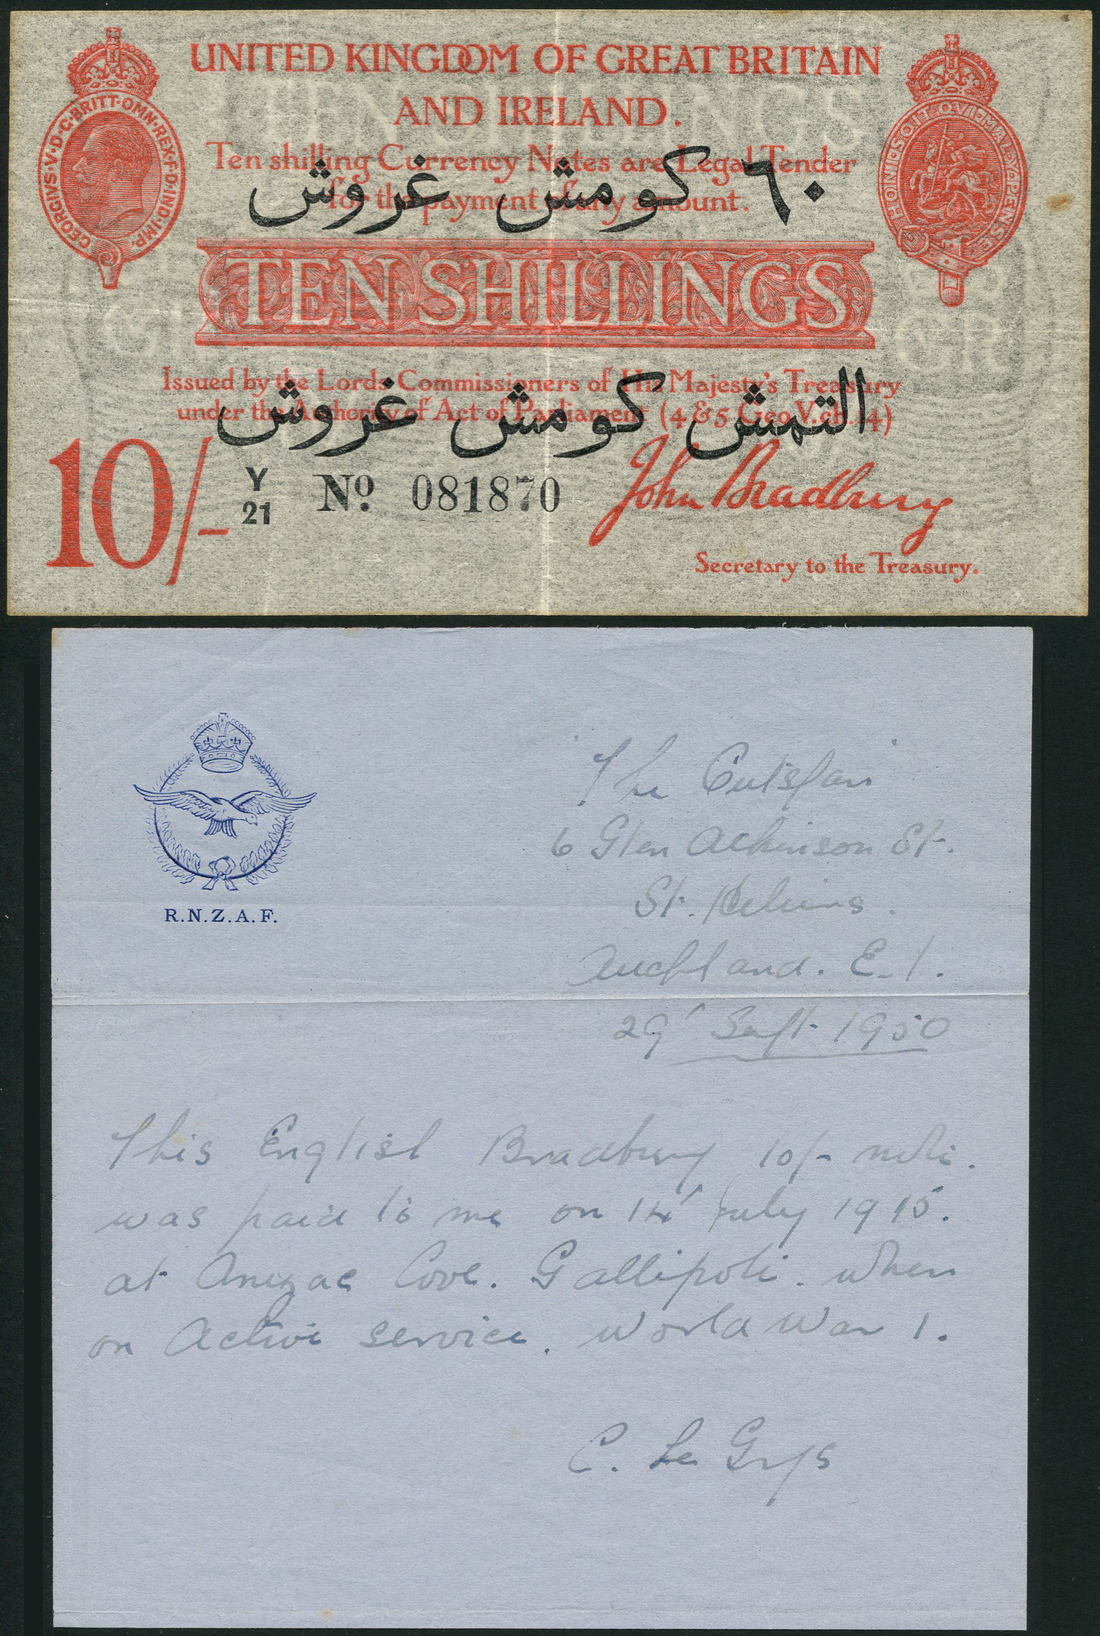 UNITED KINGDOM OF GREAT BRITAIN
AND IRELAND.
GEORGIVS·V·D·G·BRITT·OMN·REX·F·D·IND·IMP·
HONI·SOIT·QVI·MAL·Y·PENSE
Ten shilling Currency Notes are Legal Tender
for the payment of any amount.
٦٠ كومش غروش
TEN SHILLINGS
Issued by the Lords Commissioners of His Majesty's Treasury
under the Authority of Act of Parliament (4 & 5 Geo.V.ch.14)
التمش كومش غروش
10/-
Y
21
Nº 081870
John Bradbury
Secretary to the Treasury.
R.N.Z.A.F.
The
6 Glen Atkinson St.
St. Heliers.
Auckland. E.1.
29' Sept. 1950
This English Bradbury 10/- note.
was paid to me on 14' July 1915.
at Anzac Cove. Gallipoli. when
on Active service. World War 1.
C. Le Grys